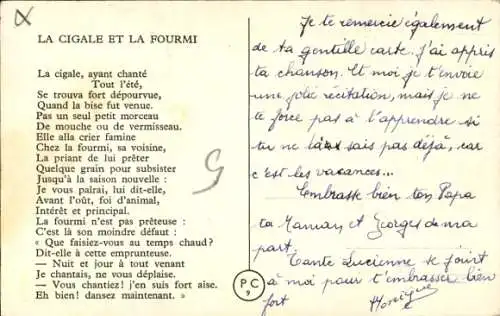 LA CIGALE ET LA FOURMI
La cigale, ayant chanté
Tout l'été,
Se trouva fort dépourvue,
Quand la bise fut venue.
Pas un seul petit morceau
De mouche ou de vermisseau.
Elle alla crier famine
Chez la fourmi, sa voisine,
La priant de lui prêter
Quelque grain pour subsister
Jusqu'à la saison nouvelle :
Je vous paîrai, lui dit-elle,
Avant l'oût, foi d'animal,
Intérêt et principal.
La fourmi n'est pas prêteuse :
C'est là son moindre défaut :
« Que faisiez-vous au temps chaud ?
Dit-elle à cette emprunteuse.
— Nuit et jour à tout venant
Je chantais, ne vous déplaise.
— Vous chantiez ! j'en suis fort aise.
Eh bien ! dansez maintenant. »
G
P C
9
Je te remercie également
de ta gentille carte. J'ai appris
ta chanson. Et moi je t'envoie
une jolie récitation, mais je ne
te force pas à l'apprendre si
tu ne la sais pas déjà, car
c'est les vacances...
Embrasse bien ton Papa
ta Maman et Georges de ma
part.
Tante Lucienne se joint
à moi pour t'embrasser bien
fort
Monique